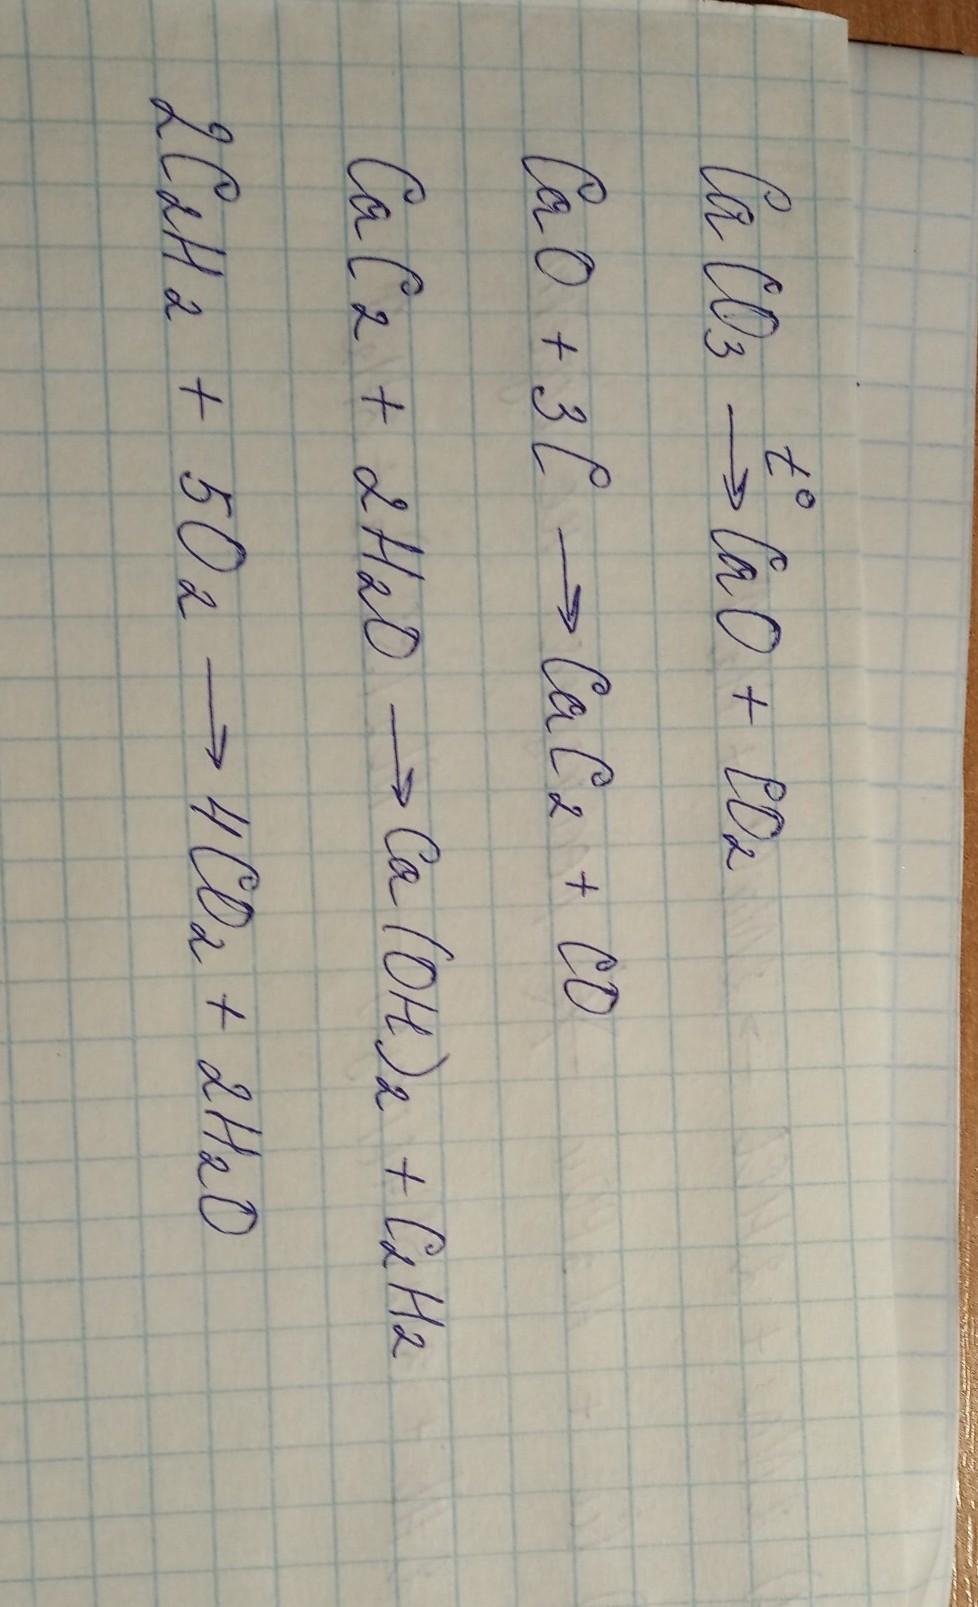 CaCO₃ →t° CaO + CO₂
CaO + 3C → CaC₂ + CO
CaC₂ + 2H₂O → Ca(OH)₂ + C₂H₂
2C₂H₂ + 5O₂ → 4CO₂ + 2H₂O